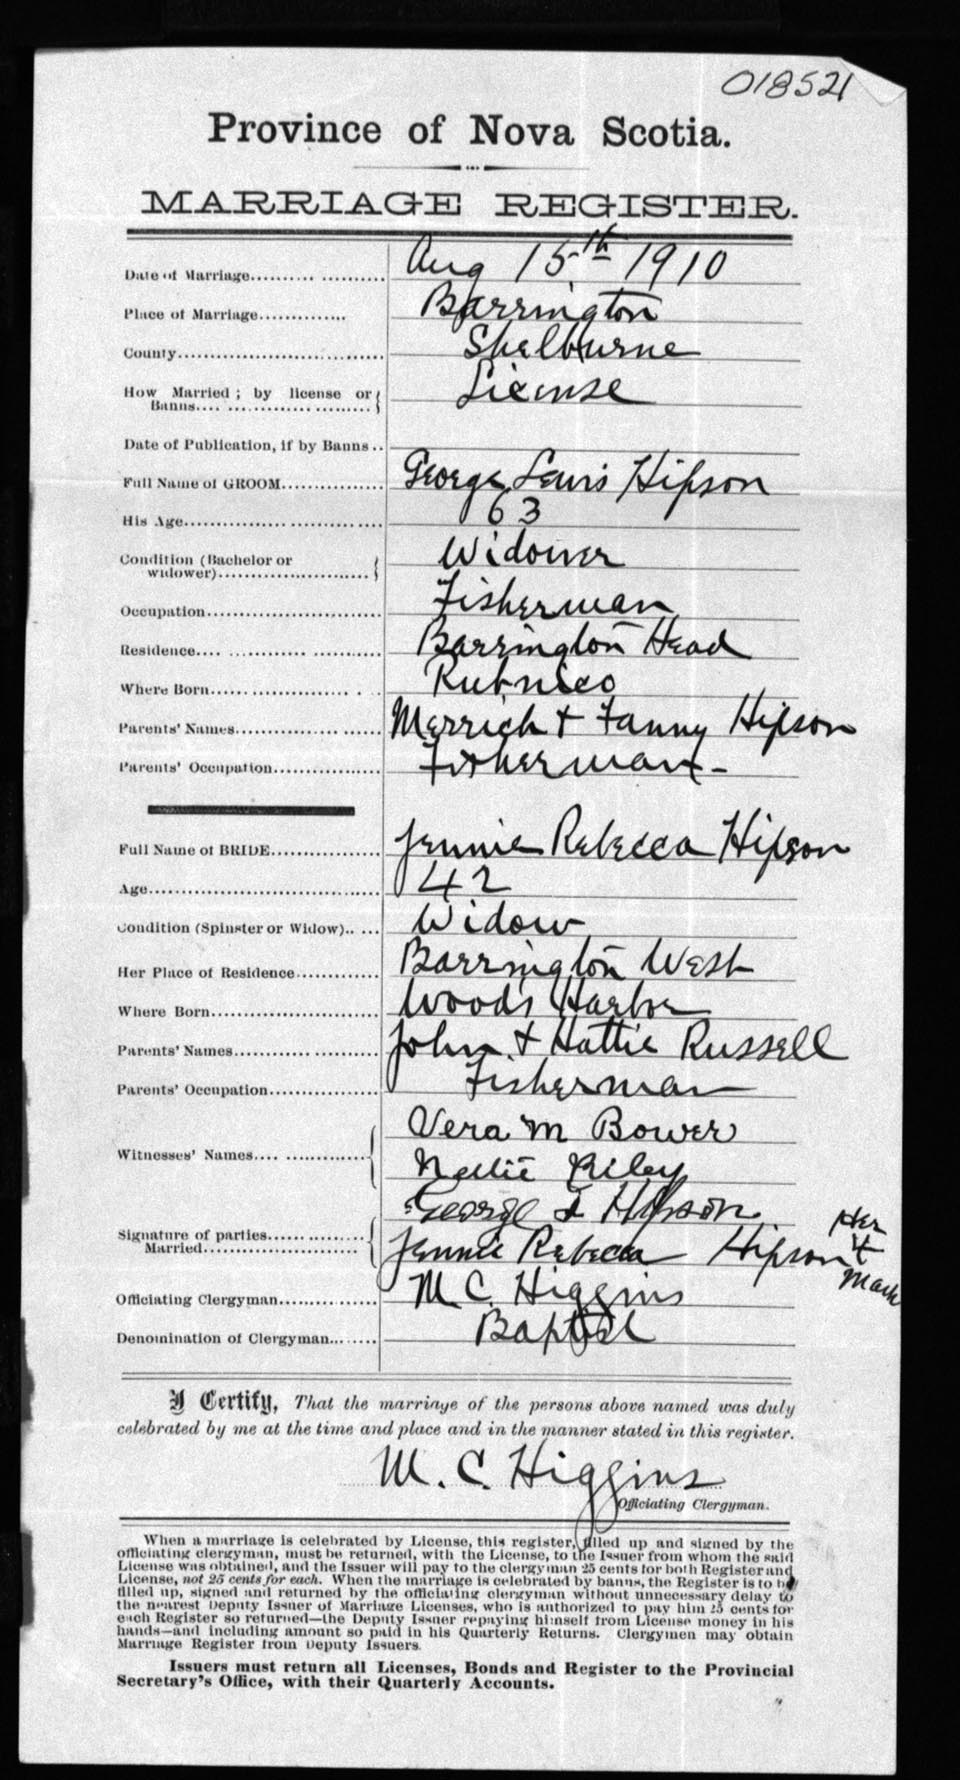 018521
Province of Nova Scotia.
MARRIAGE REGISTER.
Date of Marriage.......... .......... Aug 15th 1910
Place of Marriage............. Barrington
County................................ Shelburne
How Married ; by license or
Banns.... ............. ......... License
Date of Publication, if by Banns ..
Full Name of GROOM............... George Lewis Hipson
His Age.............................. 63
Condition (Bachelor or
widower)....................... Widower
Occupation.......................... Fisherman
Residence.... ............ .......... Barrington Head
Where Born...... ............. . . Pubnico
Parents' Names.............. ....... Merrich + Fanny Hipson
Parents' Occupation................ Fisherman
Full Name of BRIDE................ Jennie Rebecca Hipson
Age................................... 42
Condition (Spinster or Widow).. ... Widow
Her Place of Residence............ Barrington West
Where Born......................... Woods Harbor
Parents' Names............ .......... John + Hattie Russell
Parents' Occupation................ Fisherman
Vera M Bower
Witnesses' Names.... ............
Nellie Riley
George L Hipson
Signature of parties...... ..........
Married....................... Jennie Rebecca Hipson
Her
+
Mark
Officiating Clergyman.............. M C. Higgins
Denomination of Clergyman....... Baptist
I Certify, That the marriage of the persons above named was duly
celebrated by me at the time and place and in the manner stated in this register.
M. C. Higgins
Officiating Clergyman.
When a marriage is celebrated by License, this register, filled up and signed by the
officiating clergyman, must be returned, with the License, to the Issuer from whom the said
License was obtained, and the Issuer will pay to the clergyman 25 cents for both Register and
License, not 25 cents for each. When the marriage is celebrated by banns, the Register is to be
filled up, signed and returned by the officiating clergyman without unnecessary delay to
the nearest Deputy Issuer of Marriage Licenses, who is authorized to pay him 25 cents for
each Register so returned—the Deputy Issuer repaying himself from License money in his
hands—and including amount so paid in his Quarterly Returns. Clergymen may obtain
Marriage Register from Deputy Issuers.
Issuers must return all Licenses, Bonds and Register to the Provincial
Secretary's Office, with their Quarterly Accounts.